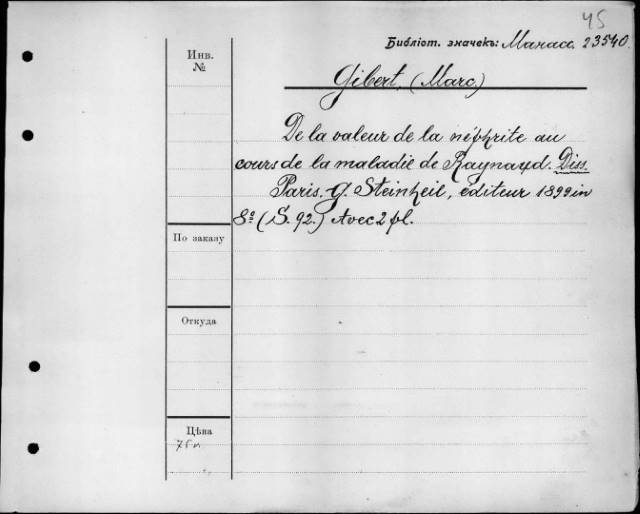 45
Библіот. значекъ: Манасс. 23540.
Инв.
№
Gibert, (Marc.)
De la valeur de la néphrite au
cours de la maladie de Raynaud. Diss.
Paris. G. Steinheil, éditeur 1899 in
8º (S. 92.) Avec 2 pl.
По заказу
Откуда
Цѣна
75 к